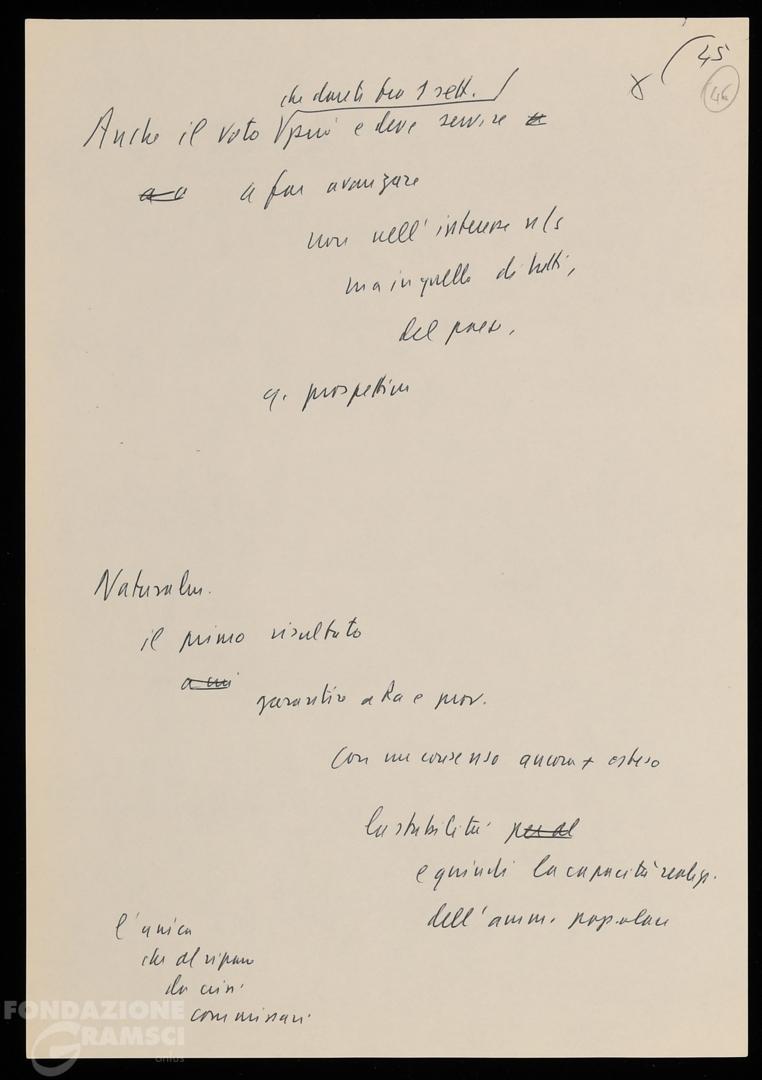 45
46
che darete tra 1 sett.
Anche il voto può e deve servire a
a a a far avanzare
non nell'interesse n/s
ma in quello di tutti,
del paese,
q. prospettiva
Naturalm.
il primo risultato
a cui
garantire a Ra e prov.
con un consenso ancora + esteso
la stabilità per al
e quindi la capacità realizz.
dell'amm. popolare
l'unica
che al riparo
da crisi
commissari
FONDAZIONE
GRAMSCI
onlus